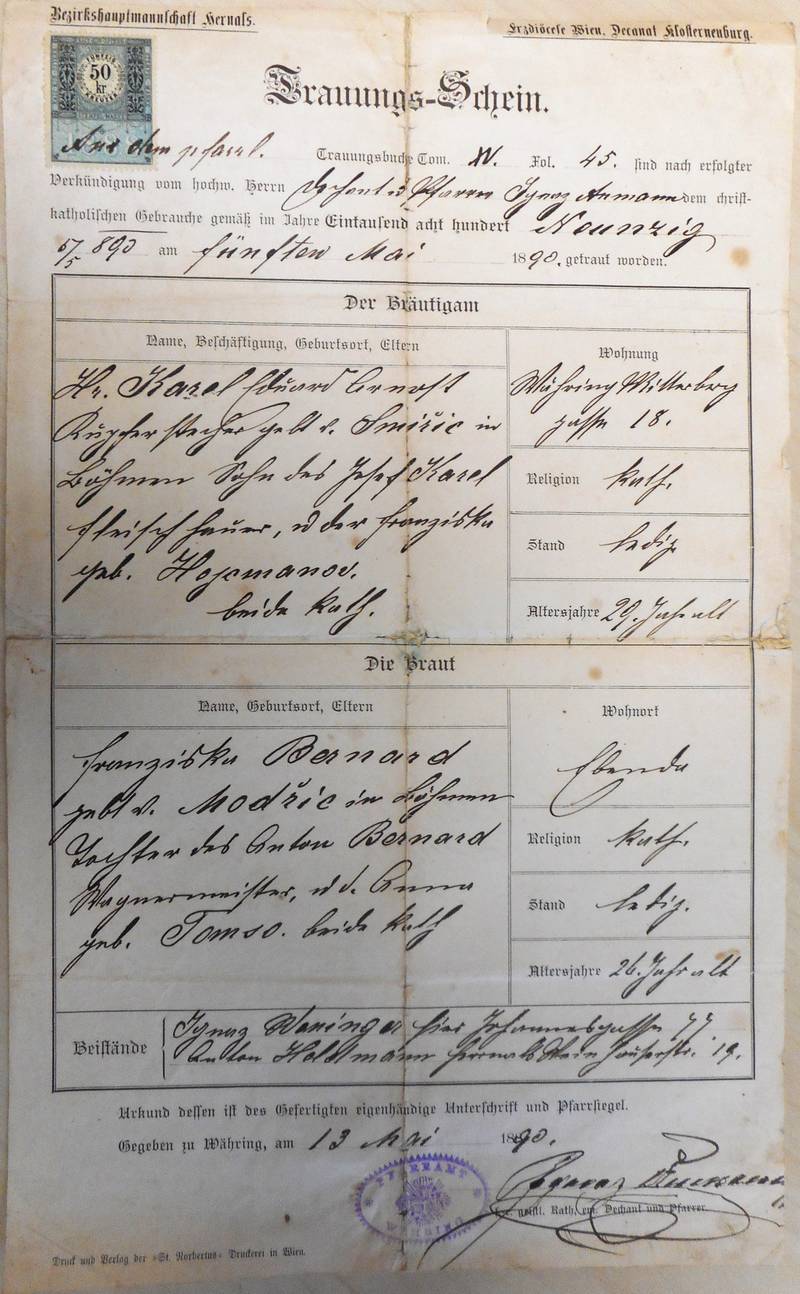 Bezirkshauptmannschaft Hernals.
Erzdiöcese Wien, Decanat Klosterneuburg.
50 kr
Trauungs-Schein.
Aus dem pfarrl. Trauungsbuche Tom. XV. Fol. 45. sind nach erfolgter
Verkündigung vom hochw. Herrn Dechant u Pfarrer Ignaz dem christ-
katholischen Gebrauche gemäß im Jahre Eintausend acht hundert Neunzig
5/5 890 am fünften Mai 1890. getraut worden.
Der Bräutigam
Name, Beschäftigung, Geburtsort, Eltern
Wohnung
Hr. Karel Eduard Ernost
Kupferstecher gebt v. Smiřic in
Böhmen Sohn des Josef Karel
Fleischhauer, u der Franziska
geb.
beide kath.
Währing Wittelberg
gasse 18.
Religion kath.
Stand ledig
Altersjahre 29. Jahr alt
Die Braut
Name, Geburtsort, Eltern
Wohnort
Franziska Bernard
gebt v. Modřic in Böhmen
Tochter des Anton Bernard
Wagnermeister, u d. Anna
geb. Tomso. beide kath
Ebenda
Religion kath.
Stand ledig.
Altersjahre 26. Jahr alt
Beistände
Ignaz Weninger hier Johannesgasse 77
Anton Hernals 19.
Urkund dessen ist des Gefertigten eigenhändige Unterschrift und Pfarrsiegel.
Gegeben zu Währing, am 13 Mai 1890.
PFARRAMT WÄHRING
Ignaz
geistl. Rath, em. Dechant und Pfarrer.
Druck und Verlag der »St. Norbertus« Druckerei in Wien.